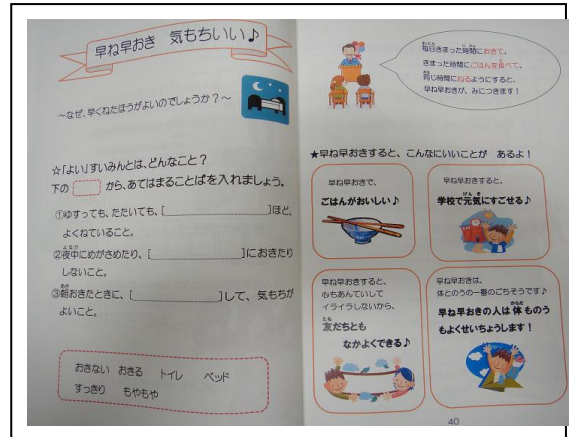 早ね早おき 気もちいい♪
～なぜ、早くねたほうがよいのでしょうか？～
☆「よい」すいみんとは、どんなこと？
下の から、あてはまることばを入れましょう。
①ゆすっても、たたいても、[ ]ほど、
よくねていること。
②夜中にめがさめたり、[ ]におきたり
しないこと。
③朝おきたときに、[ ]して、気もちが
よいこと。
おきない おきる トイレ ベッド
すっきり もやもや
毎日きまった時間におきて、
きまった時間にごはんを食べて、
同じ時間にねるようにすると、
早ね早おきが、みにつきます！
★早ね早おきすると、こんなにいいことが あるよ！
早ね早おきで、
ごはんがおいしい♪
早ね早おきすると、
学校で元気にすごせる♪
早ね早おきすると、
心もあんていして
イライラしないから、
友だちとも
なかよくできる♪
早ね早おきは、
体とのうの一番のごちそうです♪
早ね早おきの人は体ものう
もよくせいちょうします！
40